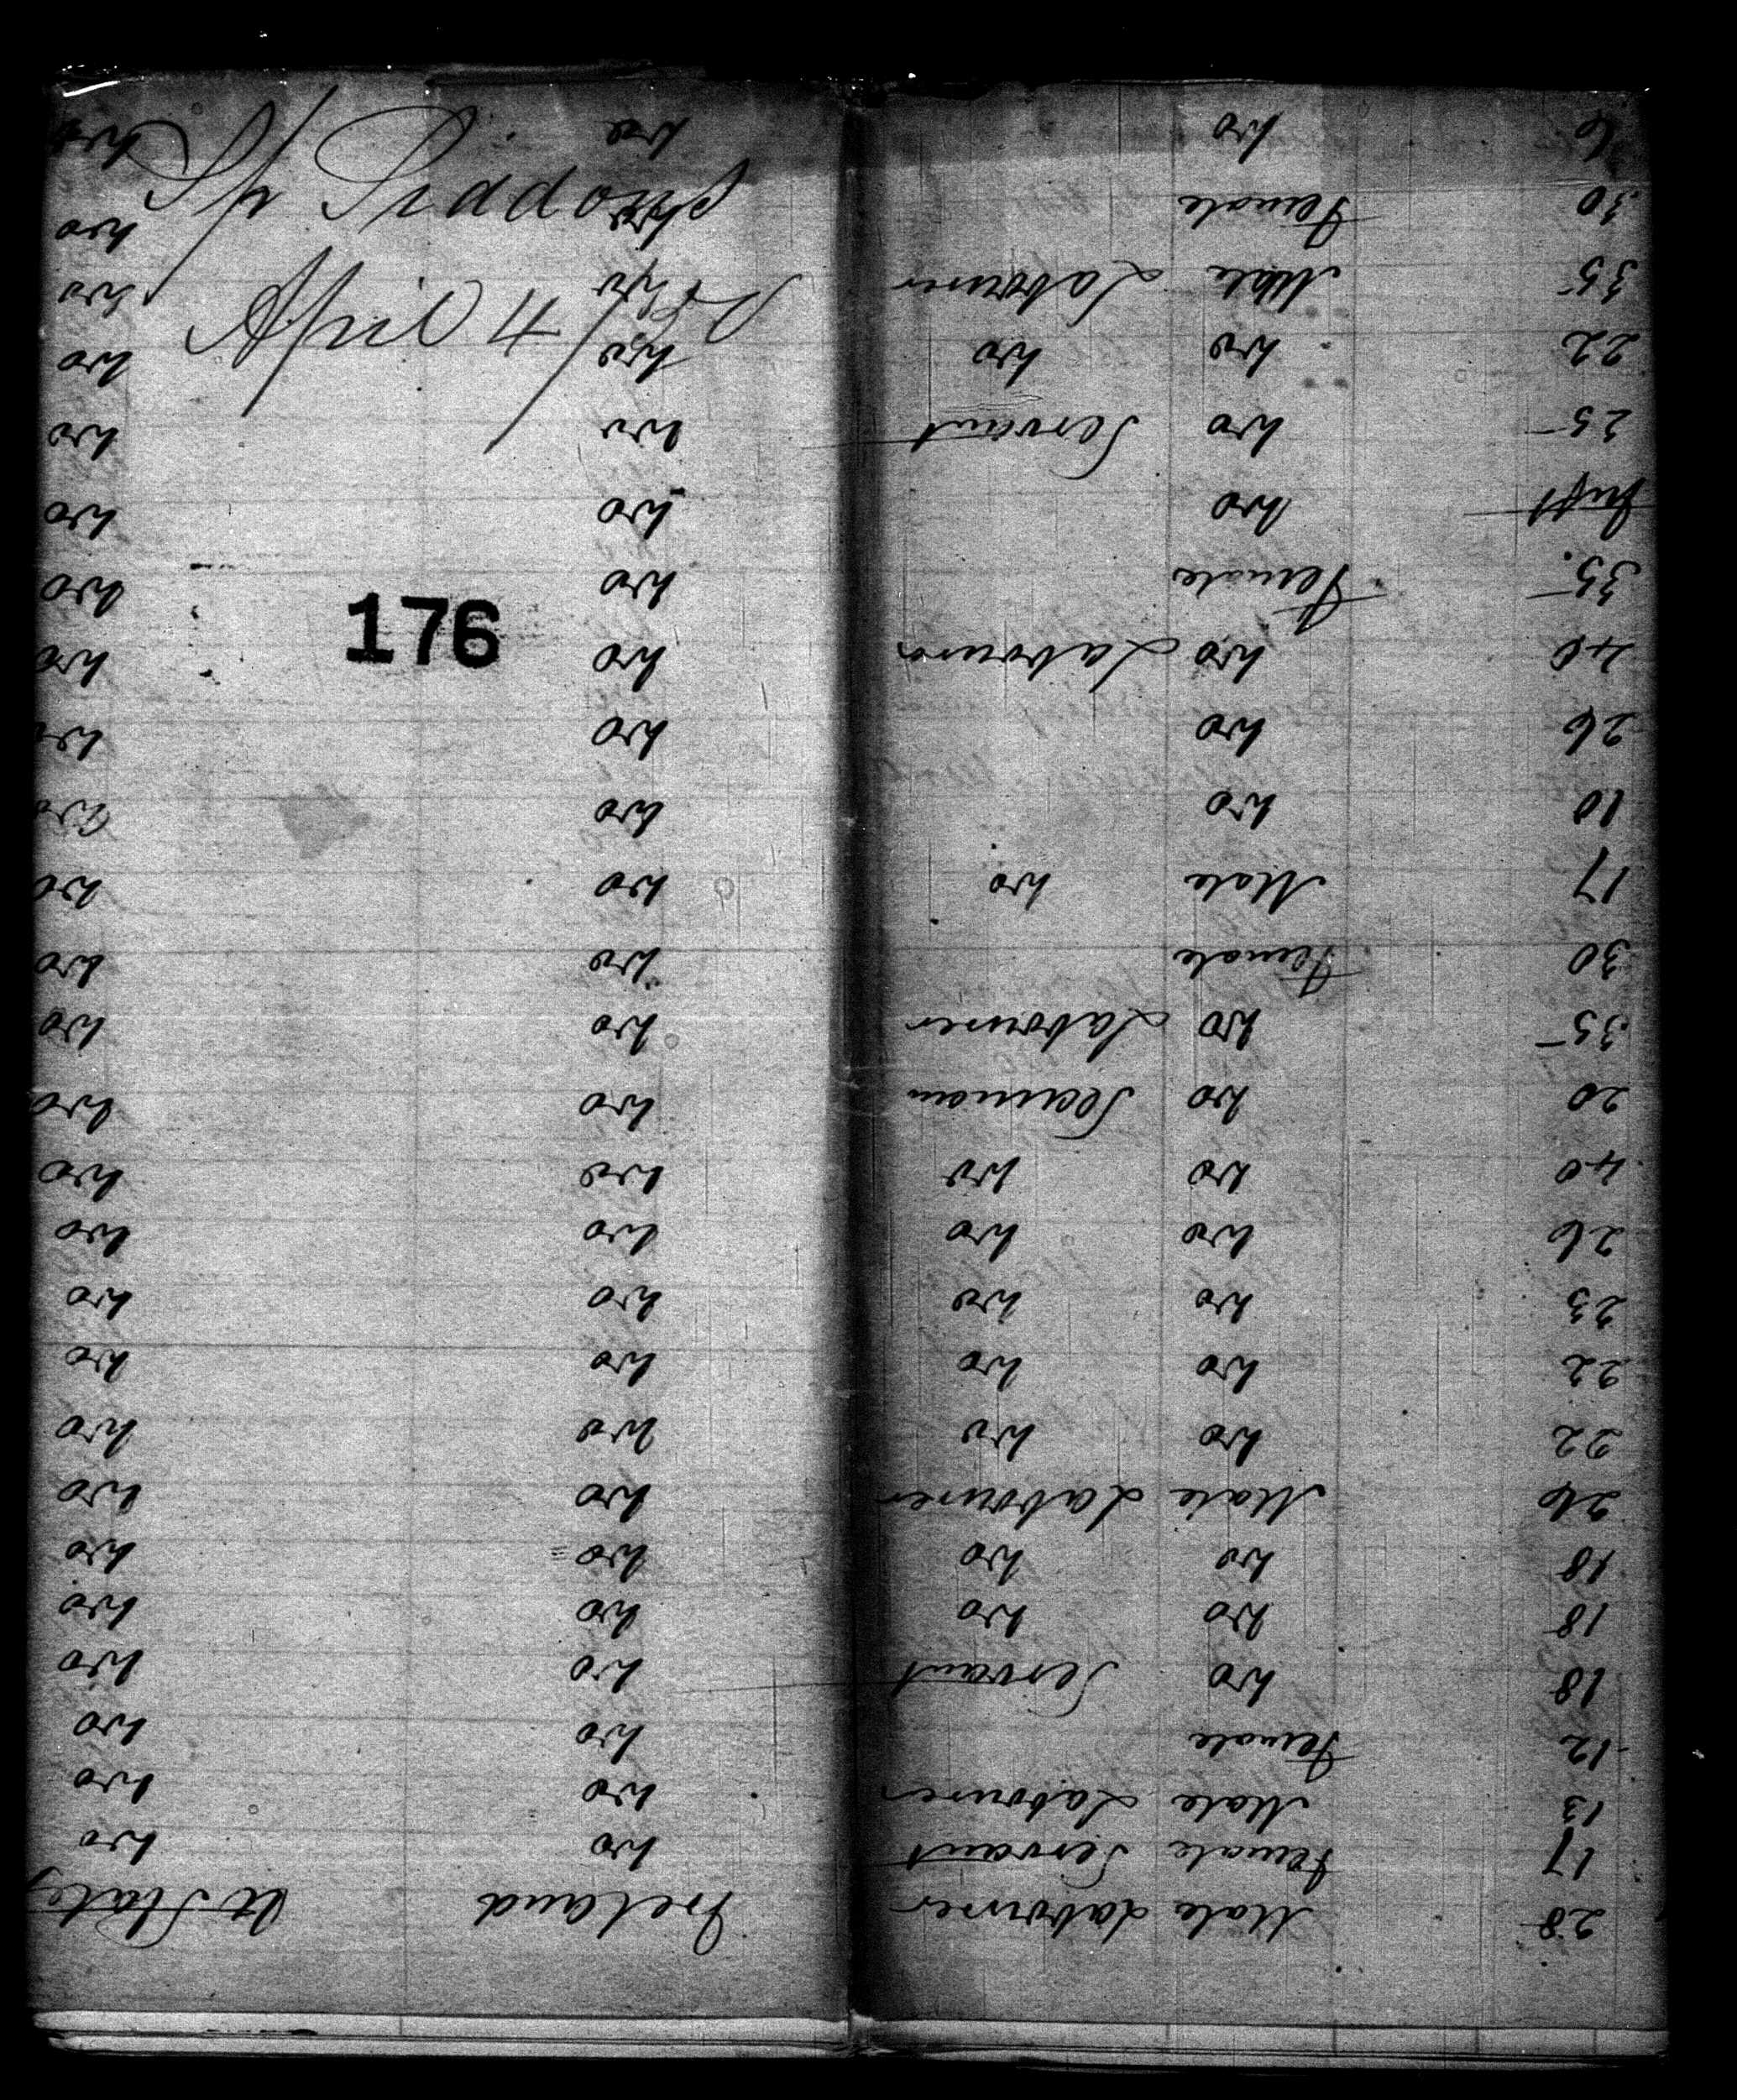 April 4
176
28 Male Labourer Ireland U States
17 Female Servant do do
13 Male Labourer do do
12 Female do do
18 do Servant do do
18 do do do do
18 do do do do
26 Male Labourer do do
22 do do do do
22 do do do do
23 do do do do
26 do do do do
40 do do do do
20 do Seaman do do
35 do Labourer do do
30 Female do do
17 Male do do do
10 do do do
26 do do do
40 do Labourer do do
35 Female do do
Inft do do do
25 do Servant do do
22 do do do do
35 Male Labourer do do
30 Female do do
6 do do do